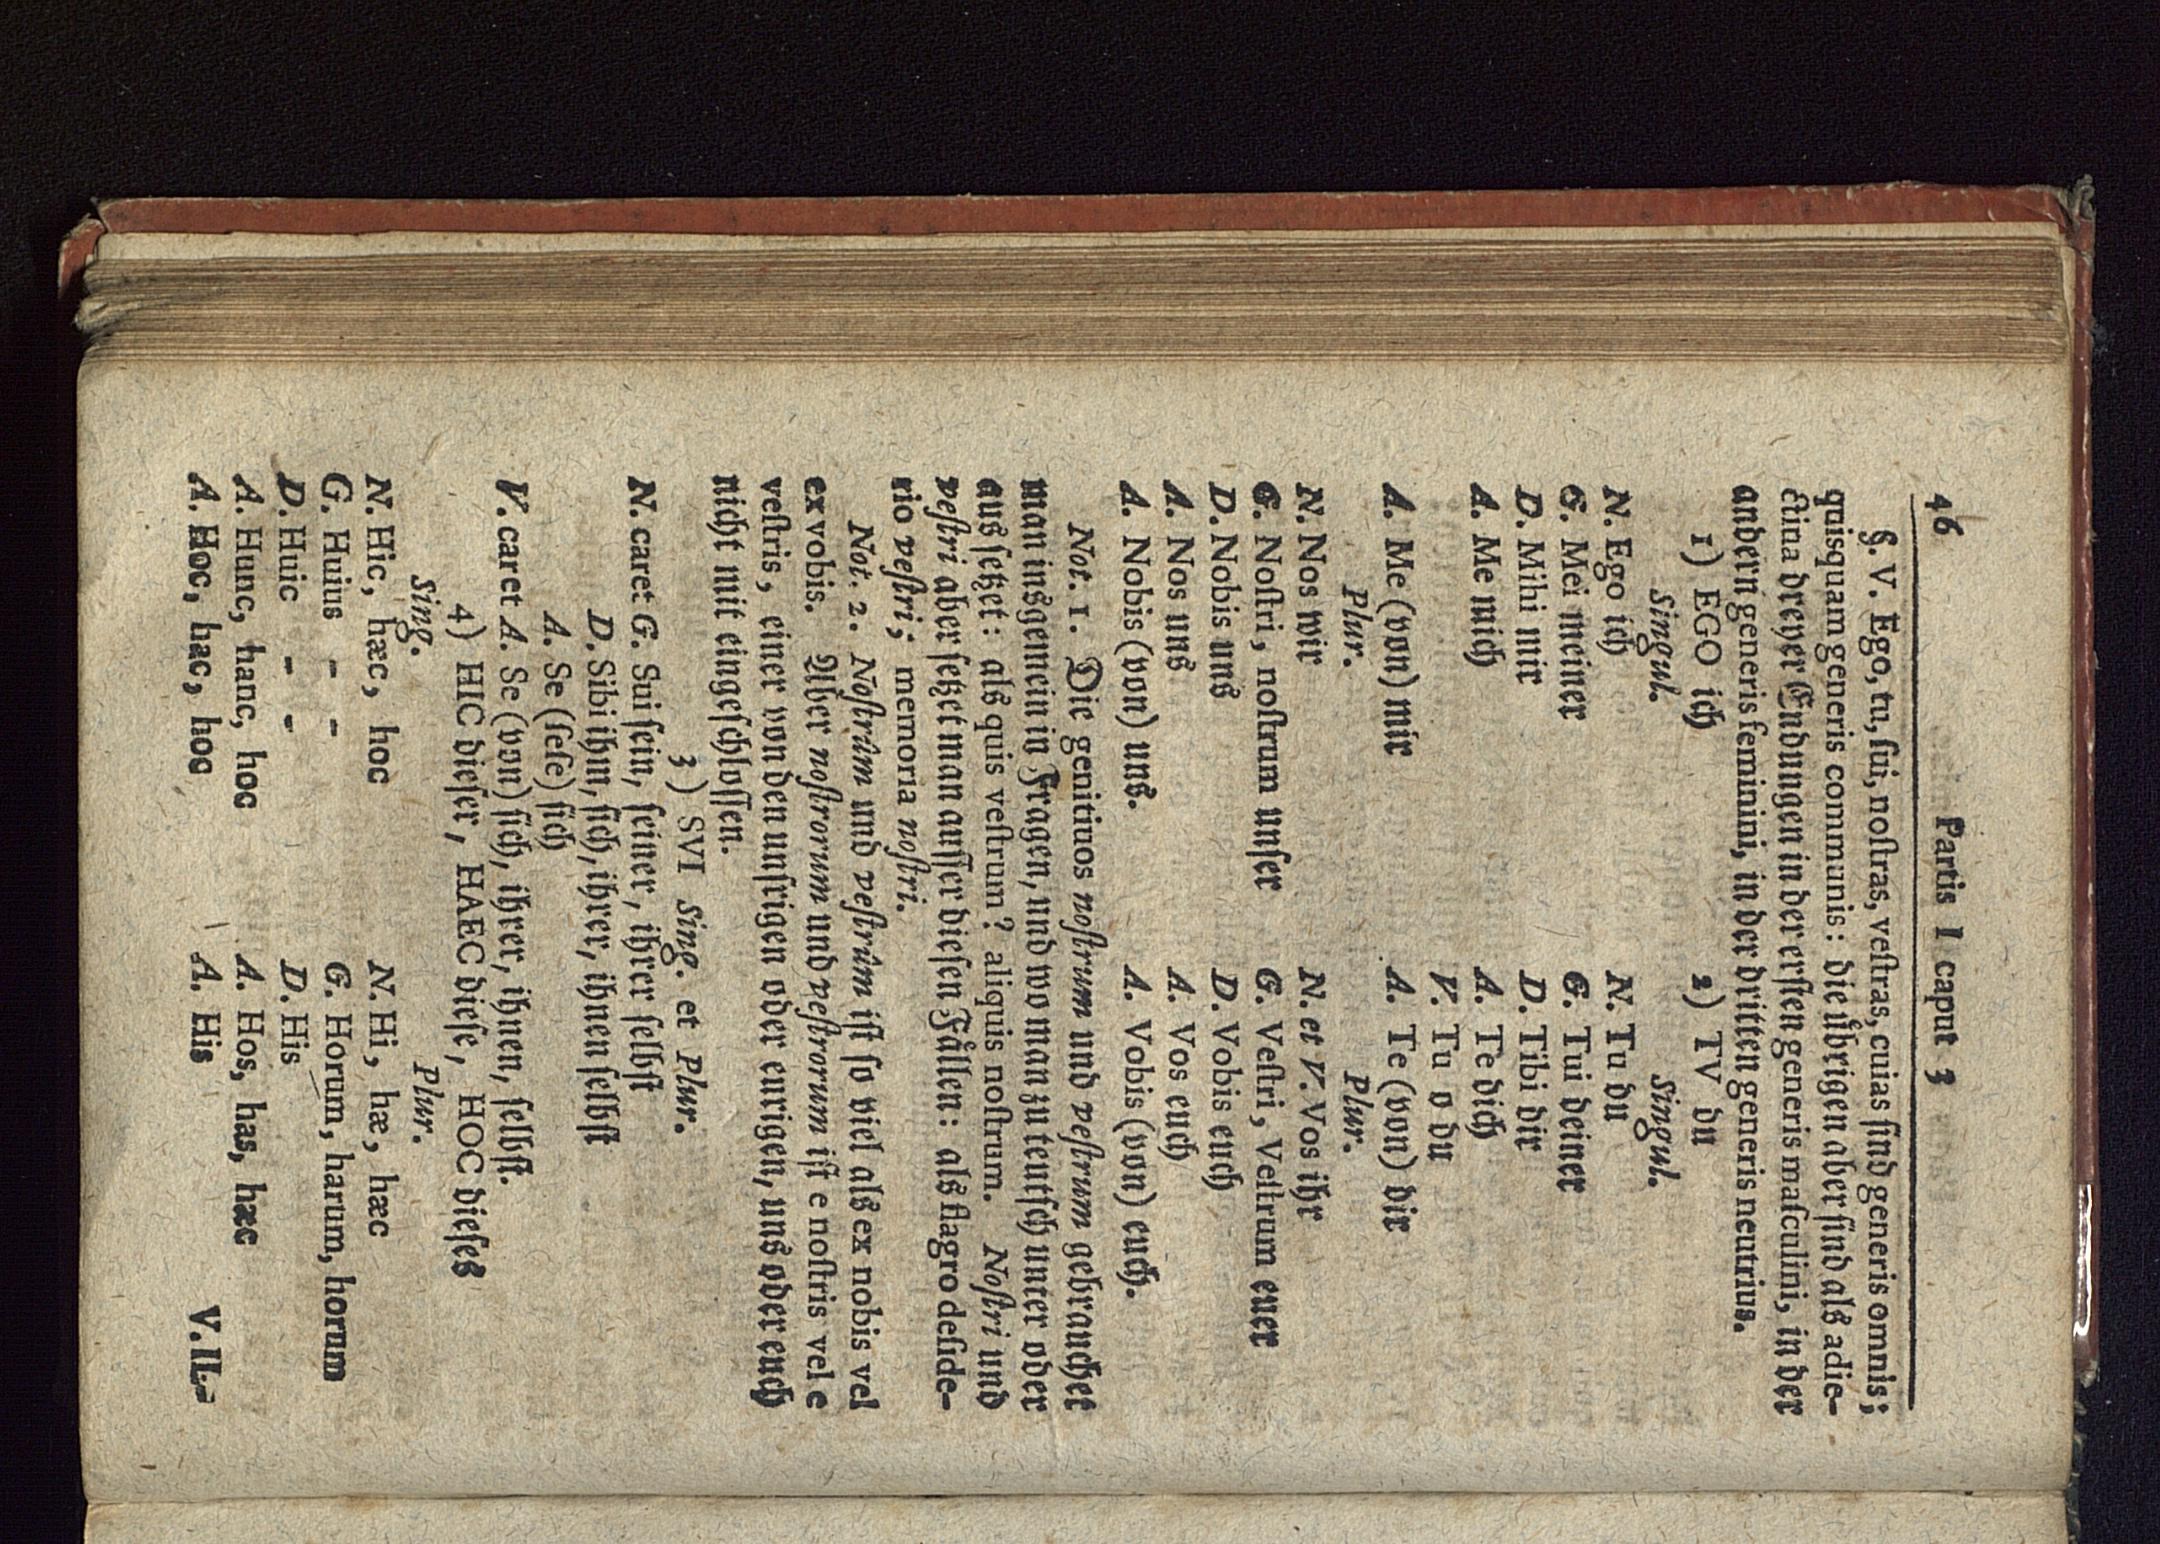 46 Partis I caput 3
§. V. Ego, tu, ſui, noſtras, veſtras, cuias ſind generis omnis;
quisquam generis communis: die uͤbrigen aber ſind als adie-
ctina dreyer Endungen in der erſten generis maſculini, in der
andern generis feminini, in der dritten generis neutrius.
1) EGO ich 2) TV du
Singul. Singul.
N. Ego ich N. Tu du
G. Mei meiner G. Tui deiner
D. Mihi mir D. Tibi dir
A. Me mich A. Te dich
V. Tu o du
A. Me (von) mir A. Te (von) dir
Plur. Plur.
N. Nos wir N. et V. Vos ihr
G. Noſtri, noſtrum unſer G. Veſtri, Veſtrum euer
D. Nobis uns D. Vobis euch
A. Nos uns A. Vos euch
A. Nobis (von) uns. A. Vobis (von) euch.
Not. 1. Die genitiuos noſtrum und veſtrum gebrauchet
man insgemein in Fragen, und wo man zu teutſch unter oder
aus ſetzet: als quis veſtrum? aliquis noſtrum. Noſtri und
veſtri aber ſetzet man auſſer dieſen Faͤllen: als flagro deſide-
rio veſtri; memoria noſtri.
Not. 2. Noſtrûm und veſtrûm iſt ſo viel als ex nobis vel
ex vobis. Aber noſtrorum und veſtrorum iſt e noſtris vel e
veſtris, einer von den unſrigen oder eurigen, uns oder euch
nicht mit eingeſchloſſen.
3) SVI Sing. et Plur.
N. caret G. Sui ſein, ſeiner, ihrer ſelbſt
D. Sibi ihm, ſich, ihrer, ihnen ſelbſt
A. Se (ſeſe) ſich
V. caret A. Se (von) ſich, ihrer, ihnen, ſelbſt.
4) HIC dieſer, HAEC dieſe, HOC dieſes
Sing. Plur.
N. Hic, hæc, hoc N. Hi, hæ, hæc
G. Huius - - G. Horum, harum, horum
D. Huic - - D. His
A. Hunc, hanc, hoc A. Hos, has, hæc
A. Hoc, hac, hoc A. His
V. IL-